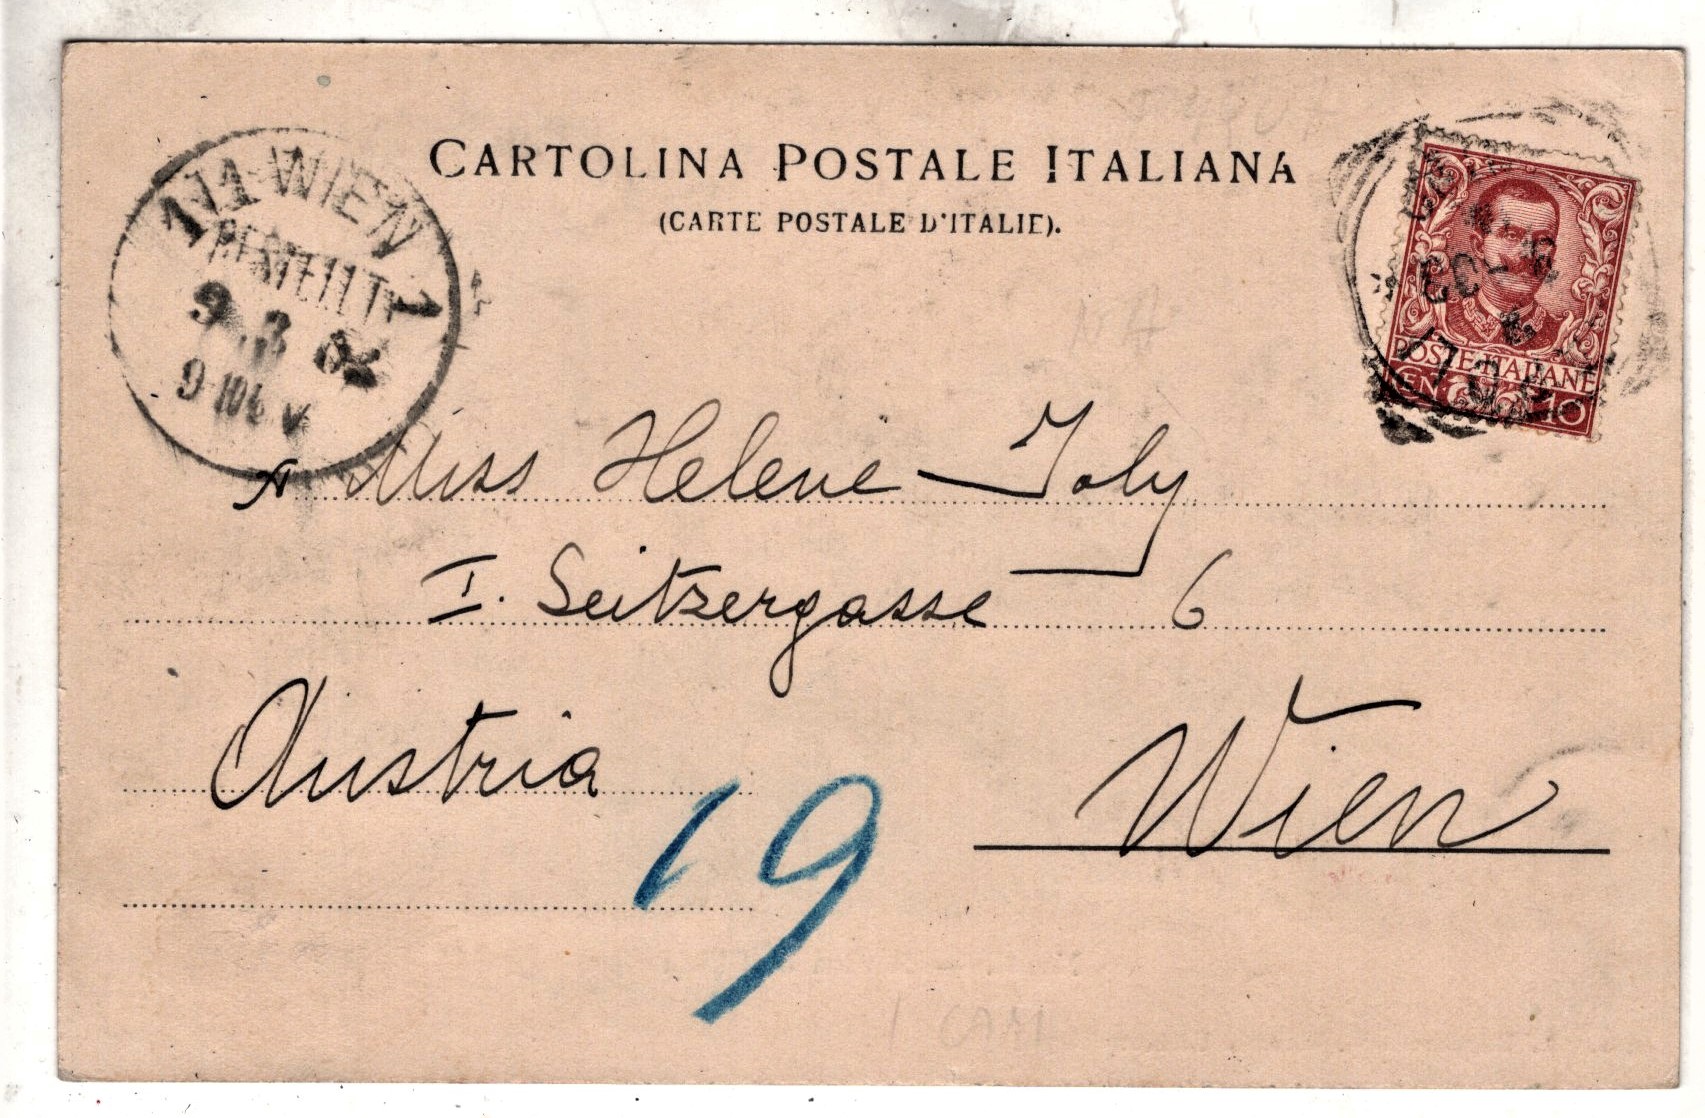 CARTOLINA POSTALE ITALIANA
(CARTE POSTALE D'ITALIE).
1/1 WIEN 1
BESTELLT
9. 3
9
POSTE ITALIANE
CEN 10
A Miss Helene Joly
I. Seitzergasse 6
Austria
Wien
19